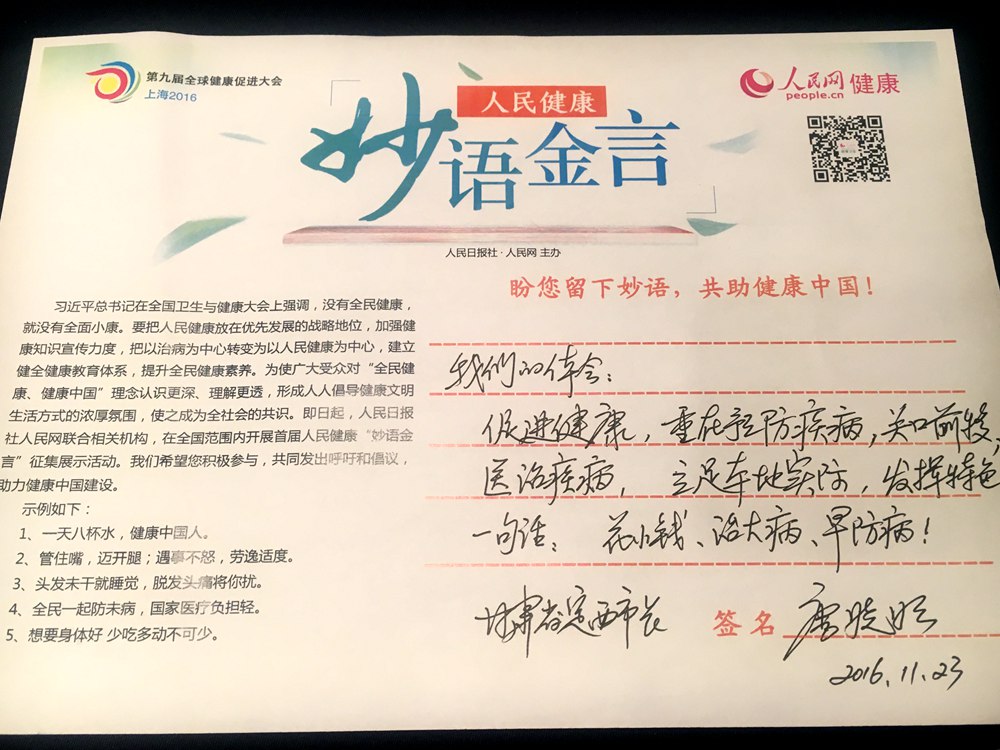 第九届全球健康促进大会
上海2016
人民健康
妙语金言
人民网 健康
people.cn
人民日报社·人民网 主办
盼您留下妙语，共助健康中国！
习近平总书记在全国卫生与健康大会上强调，没有全民健康，
就没有全面小康。要把人民健康放在优先发展的战略地位，加强健
康知识宣传力度，把以治病为中心转变为以人民健康为中心，建立
健全健康教育体系，提升全民健康素养。为使广大受众对“全民健
康、健康中国”理念认识更深、理解更透，形成人人倡导健康文明
生活方式的浓厚氛围，使之成为全社会的共识。即日起，人民日报
社人民网联合相关机构，在全国范围内开展首届人民健康“妙语金
言”征集展示活动。我们希望您积极参与，共同发出呼吁和倡议，
助力健康中国建设。
示例如下：
1、一天八杯水，健康中国人。
2、管住嘴，迈开腿；遇事不怒，劳逸适度。
3、头发未干就睡觉，脱发头痛将你扰。
4、全民一起防未病，国家医疗负担轻。
5、想要身体好 少吃多动不可少。
我们的体会：
促进健康，重在预防疾病，关口前移，
医治疾病，立足本地实际，发挥特色
一句话：花小钱、治大病、早防病！
甘肃省定西市长
签名 唐晓明
2016.11.23